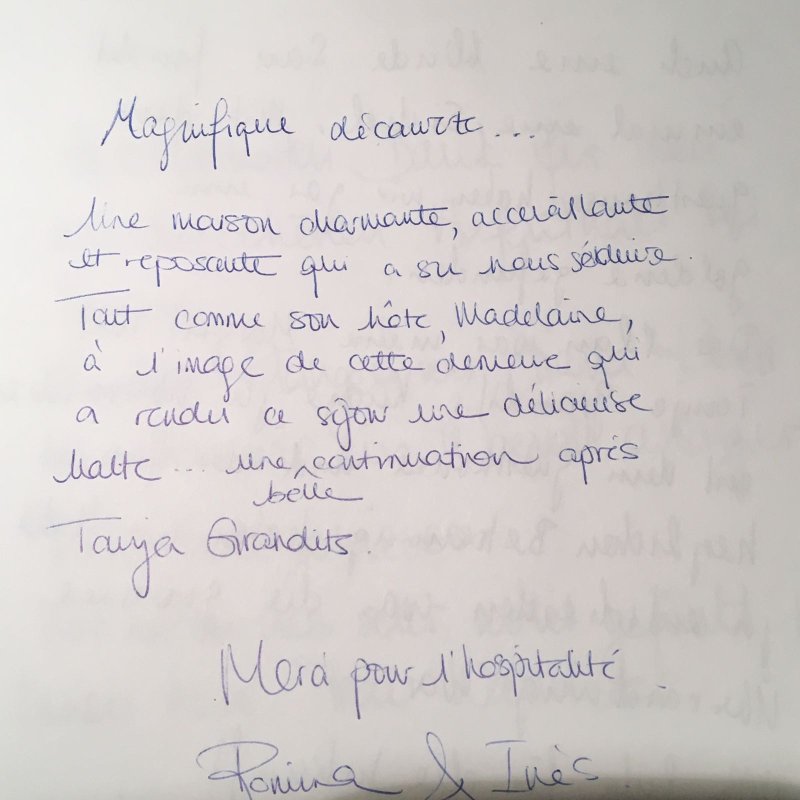 Magnifique découverte...
Une maison charmante, accueillante
et reposante qui a su nous séduire.
Tout comme son hôte, Madelaine,
à l'image de cette demeure qui
a rendu ce séjour une délicieuse
halte... une continuation après
belle
Tanja Grandits.
Merci pour l'hospitalité.
Romina & Inès